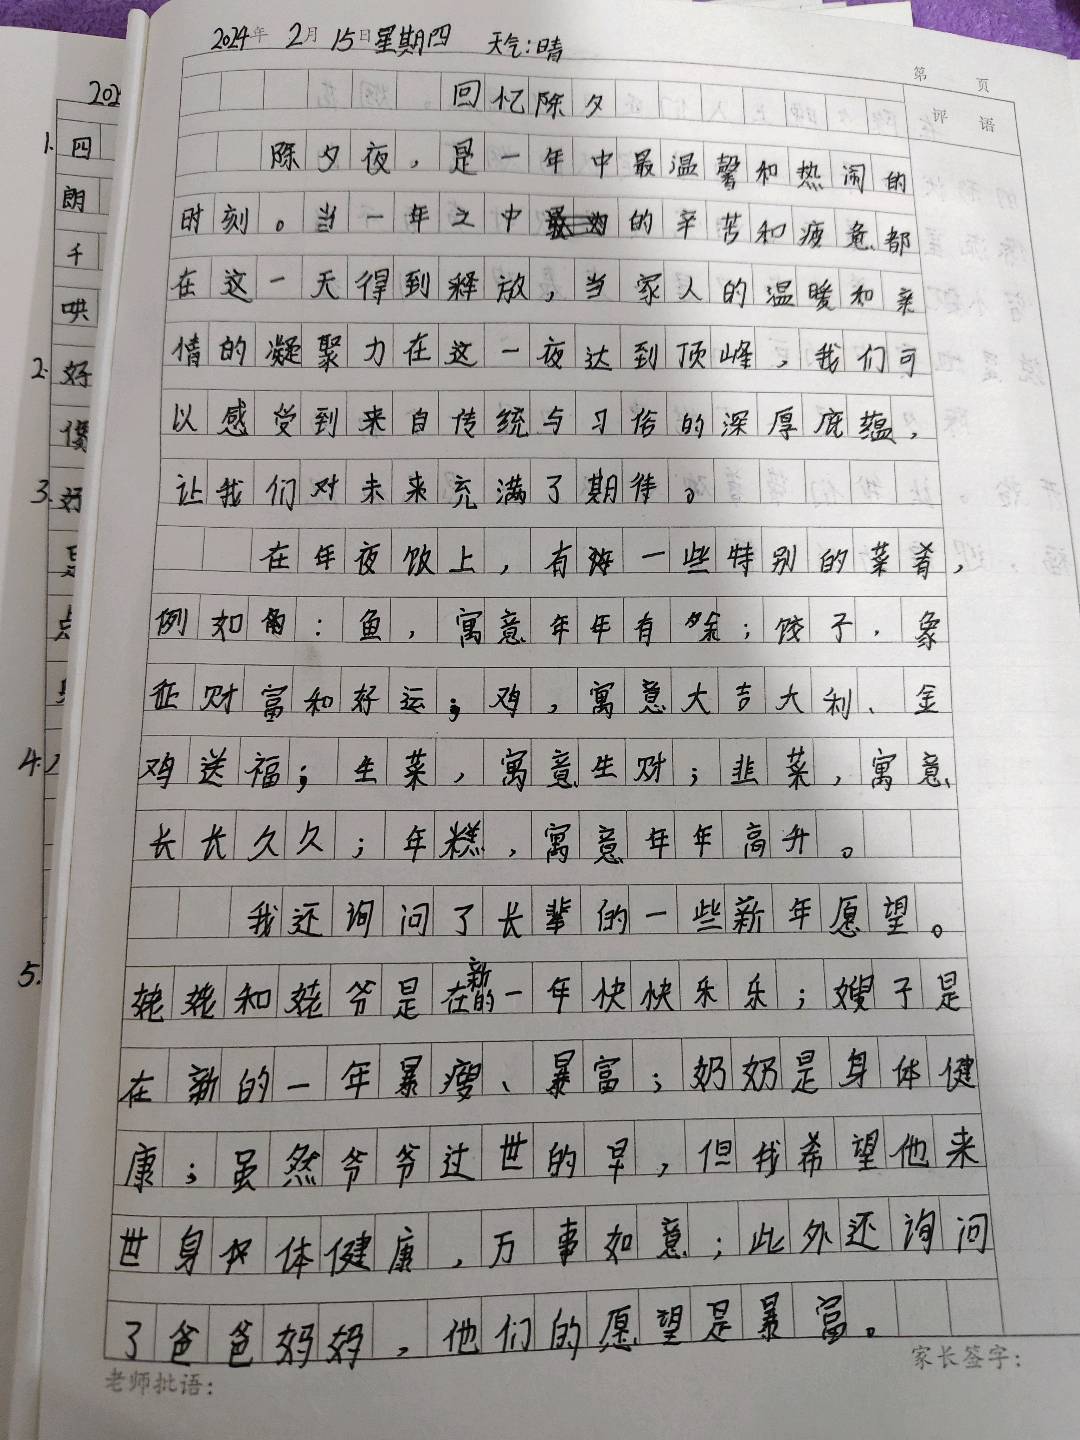 2024年 2月 15日星期四 天气:晴
第 页
评 语
回忆除夕
除夕夜,是一年中最温馨和热闹的
时刻。当一年之中的辛苦和疲惫都
在这一天得到释放,当家人的温暖和亲
情的凝聚力在这一夜达到顶峰,我们可
以感受到来自传统与习俗的深厚底蕴,
让我们对未来充满了期待。
在年夜饭上,有一些特别的菜肴,
例如:鱼,寓意年年有馀;饺子,象
征财富和好运;鸡,寓意大吉大利、金
鸡送福;生菜,寓意生财;韭菜,寓意
长长久久;年糕,寓意年年高升。
我还询问了长辈的一些新年愿望。
姥姥和姥爷是在新的一年快快乐乐;嫂子是
在新的一年暴瘦、暴富;奶奶是身体健
康;虽然爷爷过世的早,但我希望他来
世身体健康,万事如意;此外还询问
了爸爸妈妈,他们的愿望是暴富。
老师批语:
家长签字:
202
1. 四
朗
千
哄
2. 好
3. 好
点
4.
5.